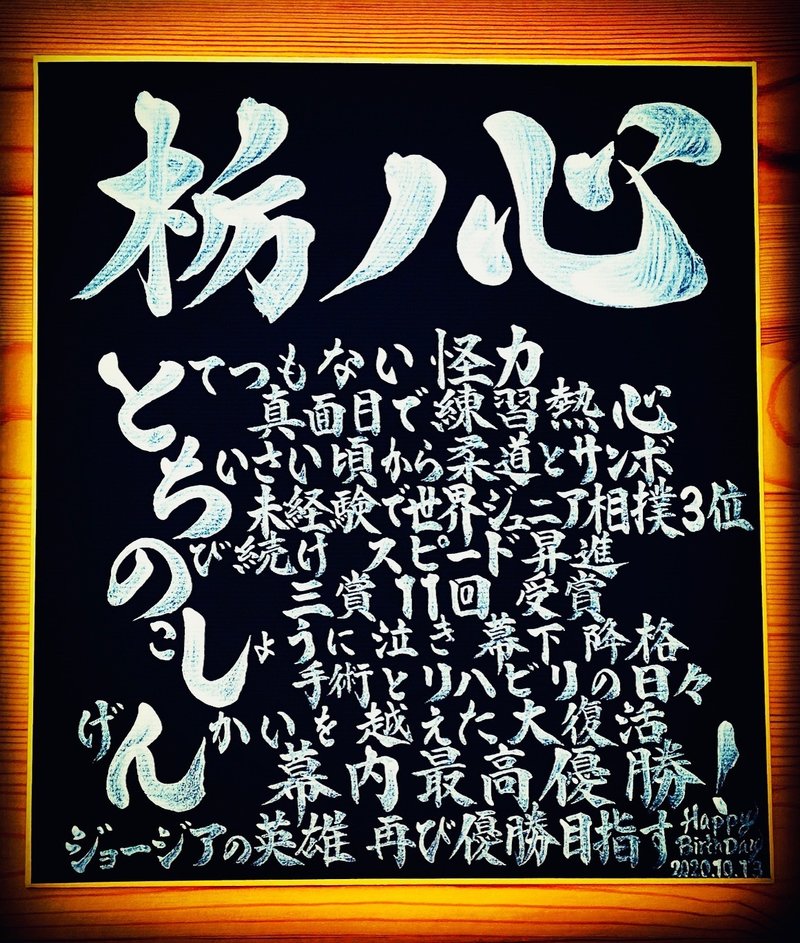 栃ノ心
とてつもない 怪力
真面目で練習熱心
ちいさい頃から柔道とサンボ
未経験で世界ジュニア相撲3位
のび続け スピード昇進
三賞 11回 受賞
こしょうに泣き 幕下降格
手術とリハビリの日々
げんかいを越えた大復活
幕内最高優勝!
ジョージアの英雄 再び優勝目指す
Happy
BirthDay
2020.10.13